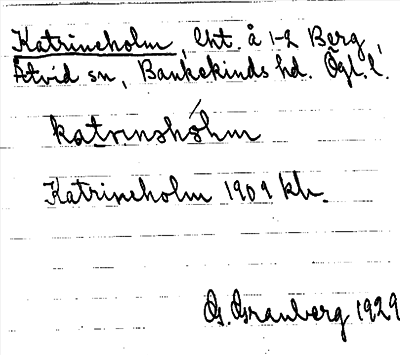 Katrineholm, lht. å 1-2 Berg,
Åtvid sn, Bankekinds hd. Ögl. l.
katrinshólm
Katrineholm 1909 kb.
G. Granberg 1929